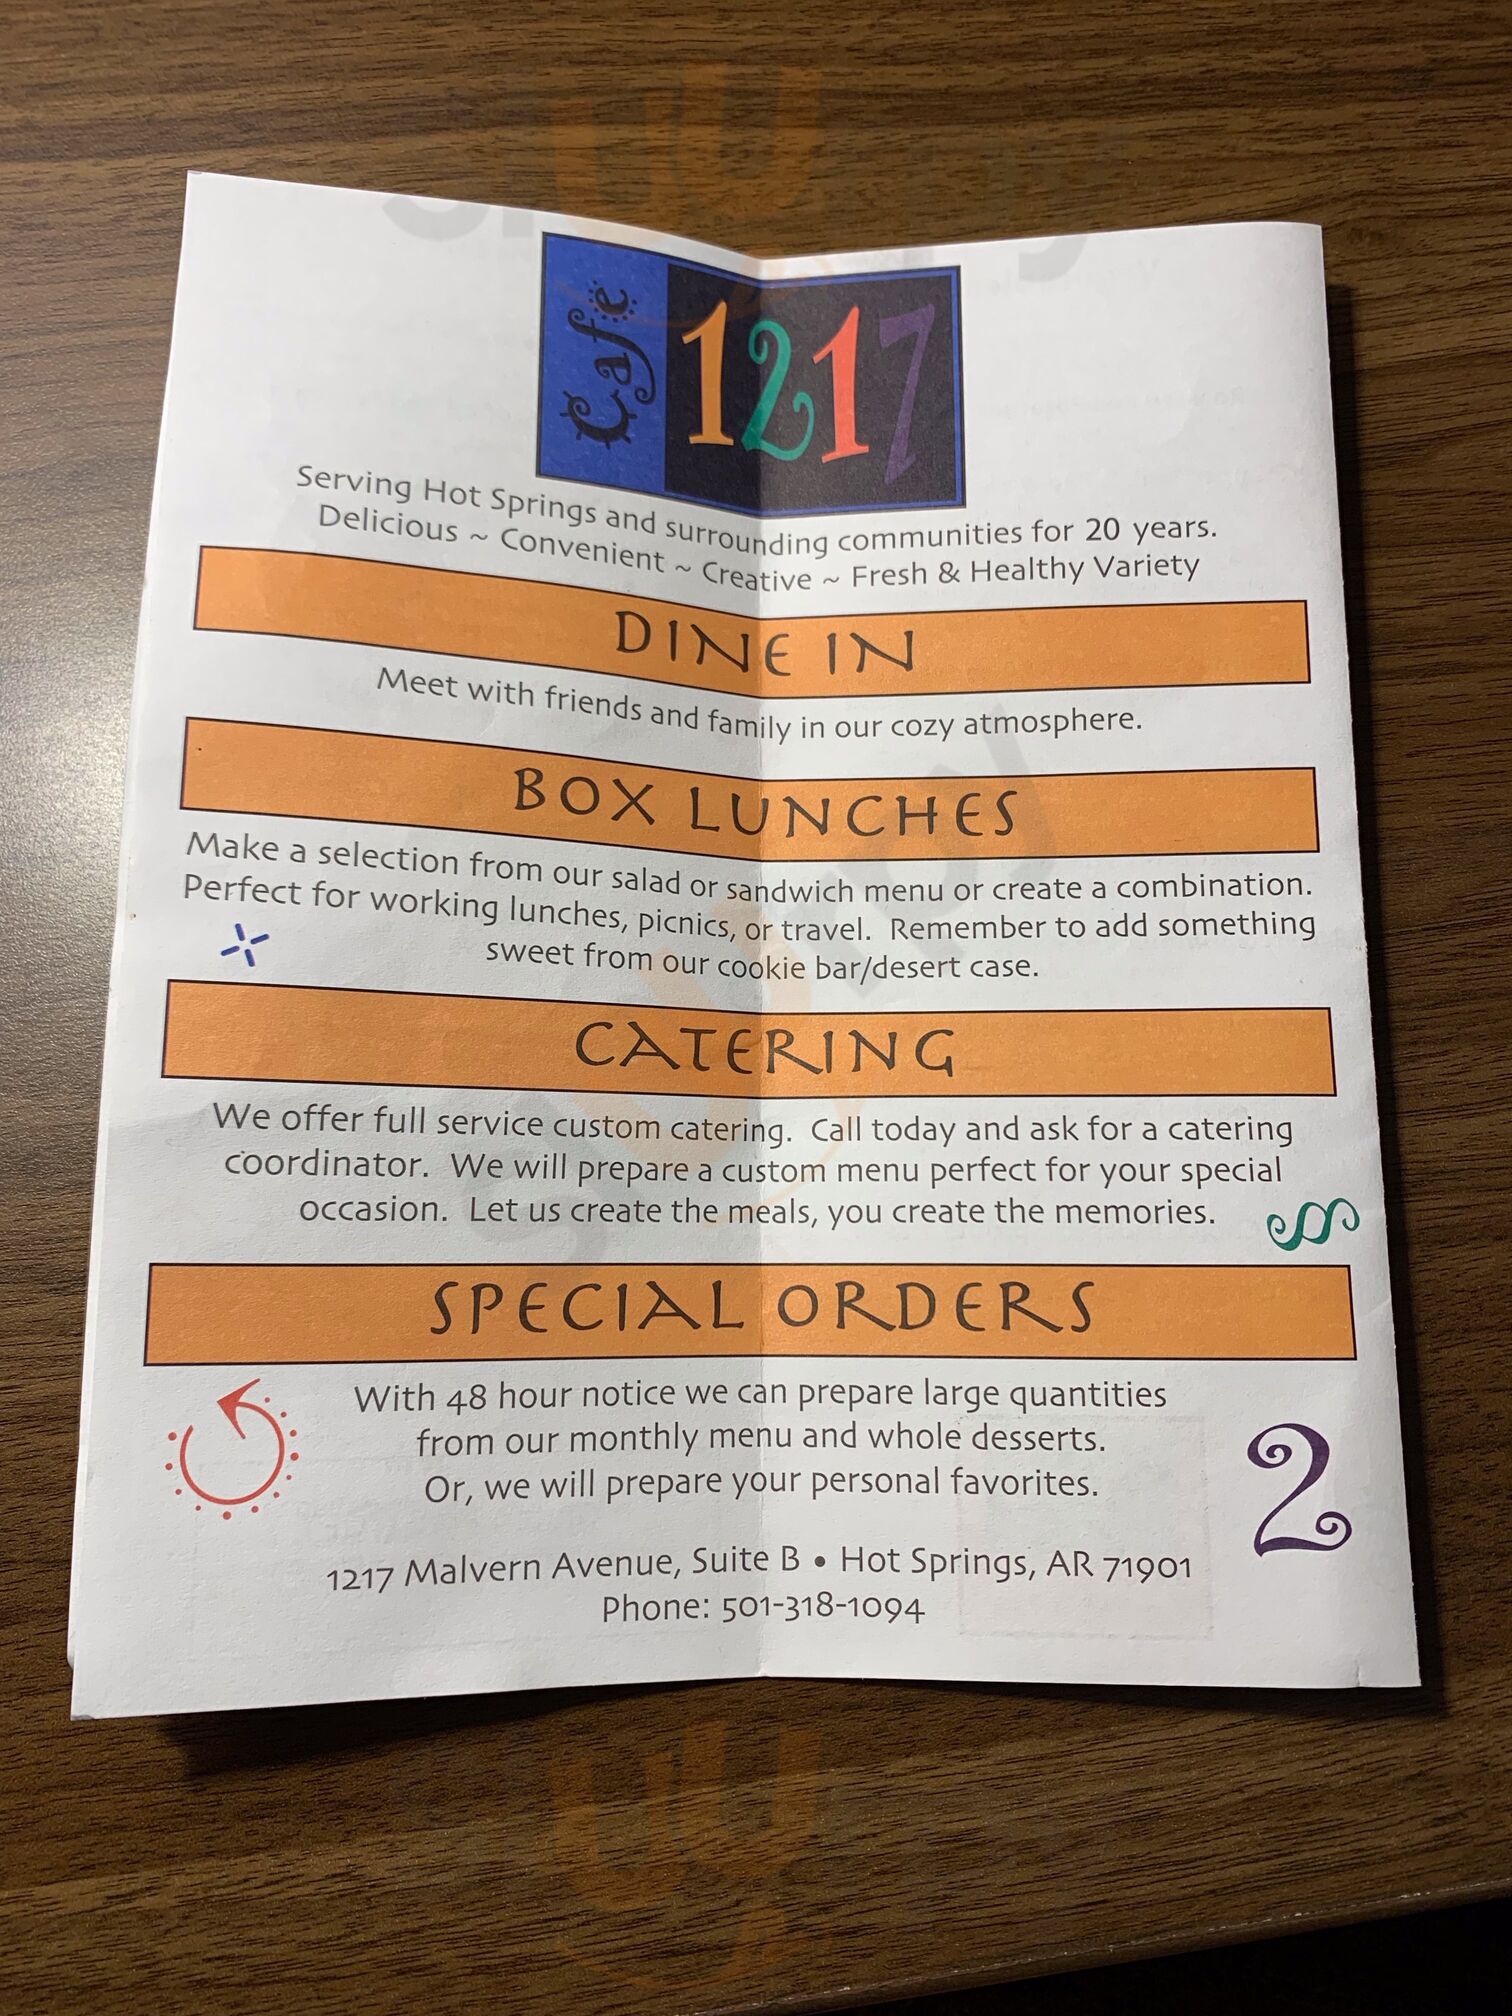 Cafe 1217
Serving Hot Springs and surrounding communities for 20 years.
Delicious ~ Convenient ~ Creative ~ Fresh & Healthy Variety
DINE IN
Meet with friends and family in our cozy atmosphere.
BOX LUNCHES
Make a selection from our salad or sandwich menu or create a combination.
Perfect for working lunches, picnics, or travel. Remember to add something
sweet from our cookie bar/desert case.
CATERING
We offer full service custom catering. Call today and ask for a catering
coordinator. We will prepare a custom menu perfect for your special
occasion. Let us create the meals, you create the memories.
SPECIAL ORDERS
With 48 hour notice we can prepare large quantities
from our monthly menu and whole desserts.
Or, we will prepare your personal favorites.
2
1217 Malvern Avenue, Suite B • Hot Springs, AR 71901
Phone: 501-318-1094